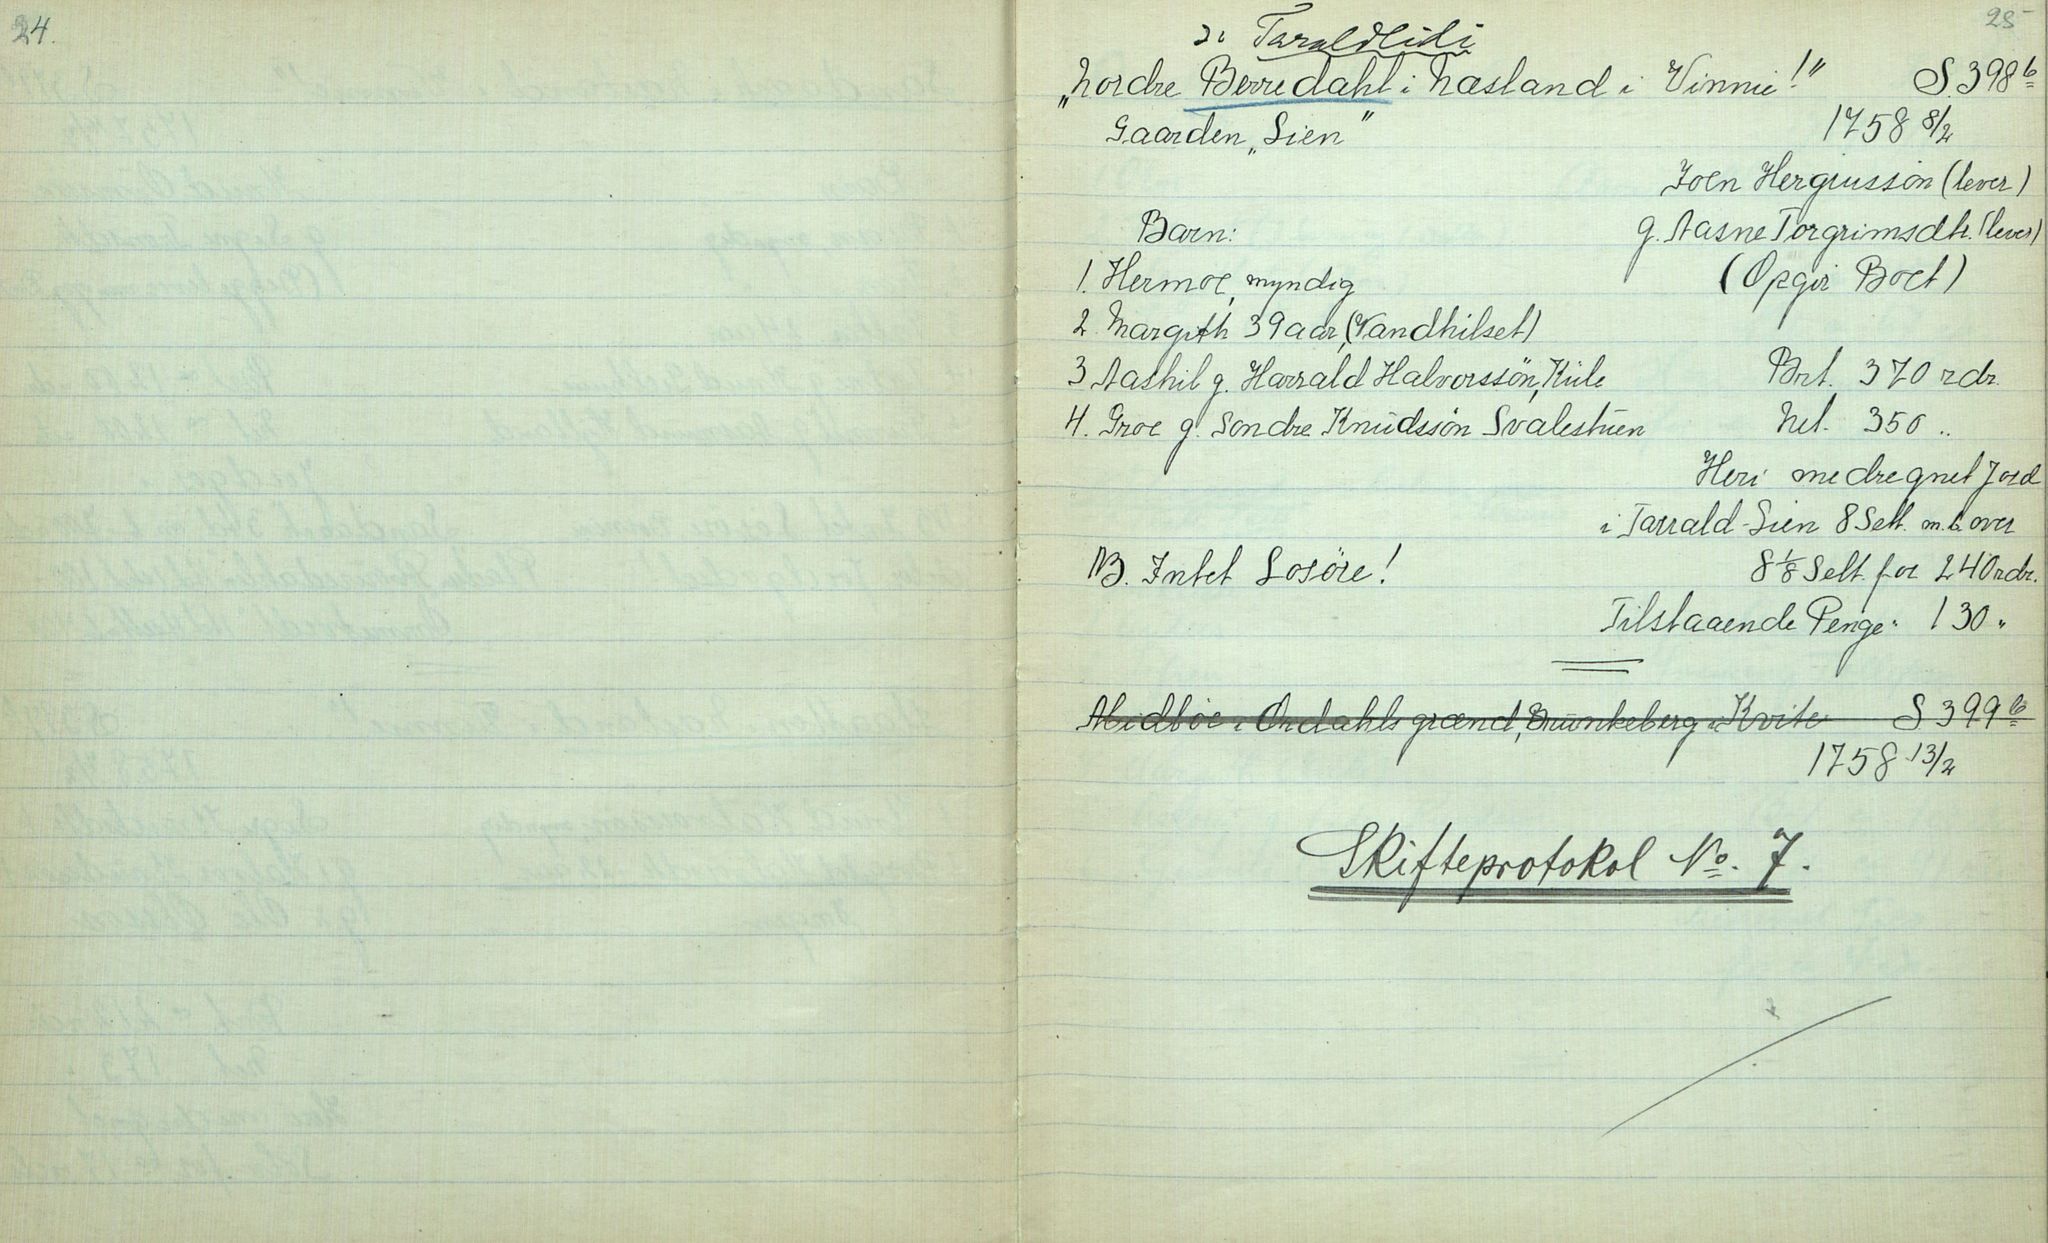 24.
25
ɔ: Taraldlidi
"Nordre Berredahl i Næsland i Vinnie!" S. 398 b
Gaarden "Lien" 1758 8/2
Joen Hergiusson (lever)
Barn: g. Aasne Torgrimsdtr. (lever)
1. Hermoe, myndig (Opgir Boet)
2. Margith 39 aar, (Vandhilset)
3 Aashil g. Harrald Halvorssön, Kile Brt. 370 rdr.
4. Groe g. Sondre Knudssön Svalestuen Net. 350 ..
Heri medregnet Jord
i Tarrald-Lien 8 Sett. m.b. over
NB. Intet Losöre! 8 1/8 Sett. for 240 rdr.
Tilstaaende Penge " 130 "
Midböe i Ordahls grænd, Brunkeberg Kvite S 399 b
1758 13/2
Skifteprotokol No. 7.